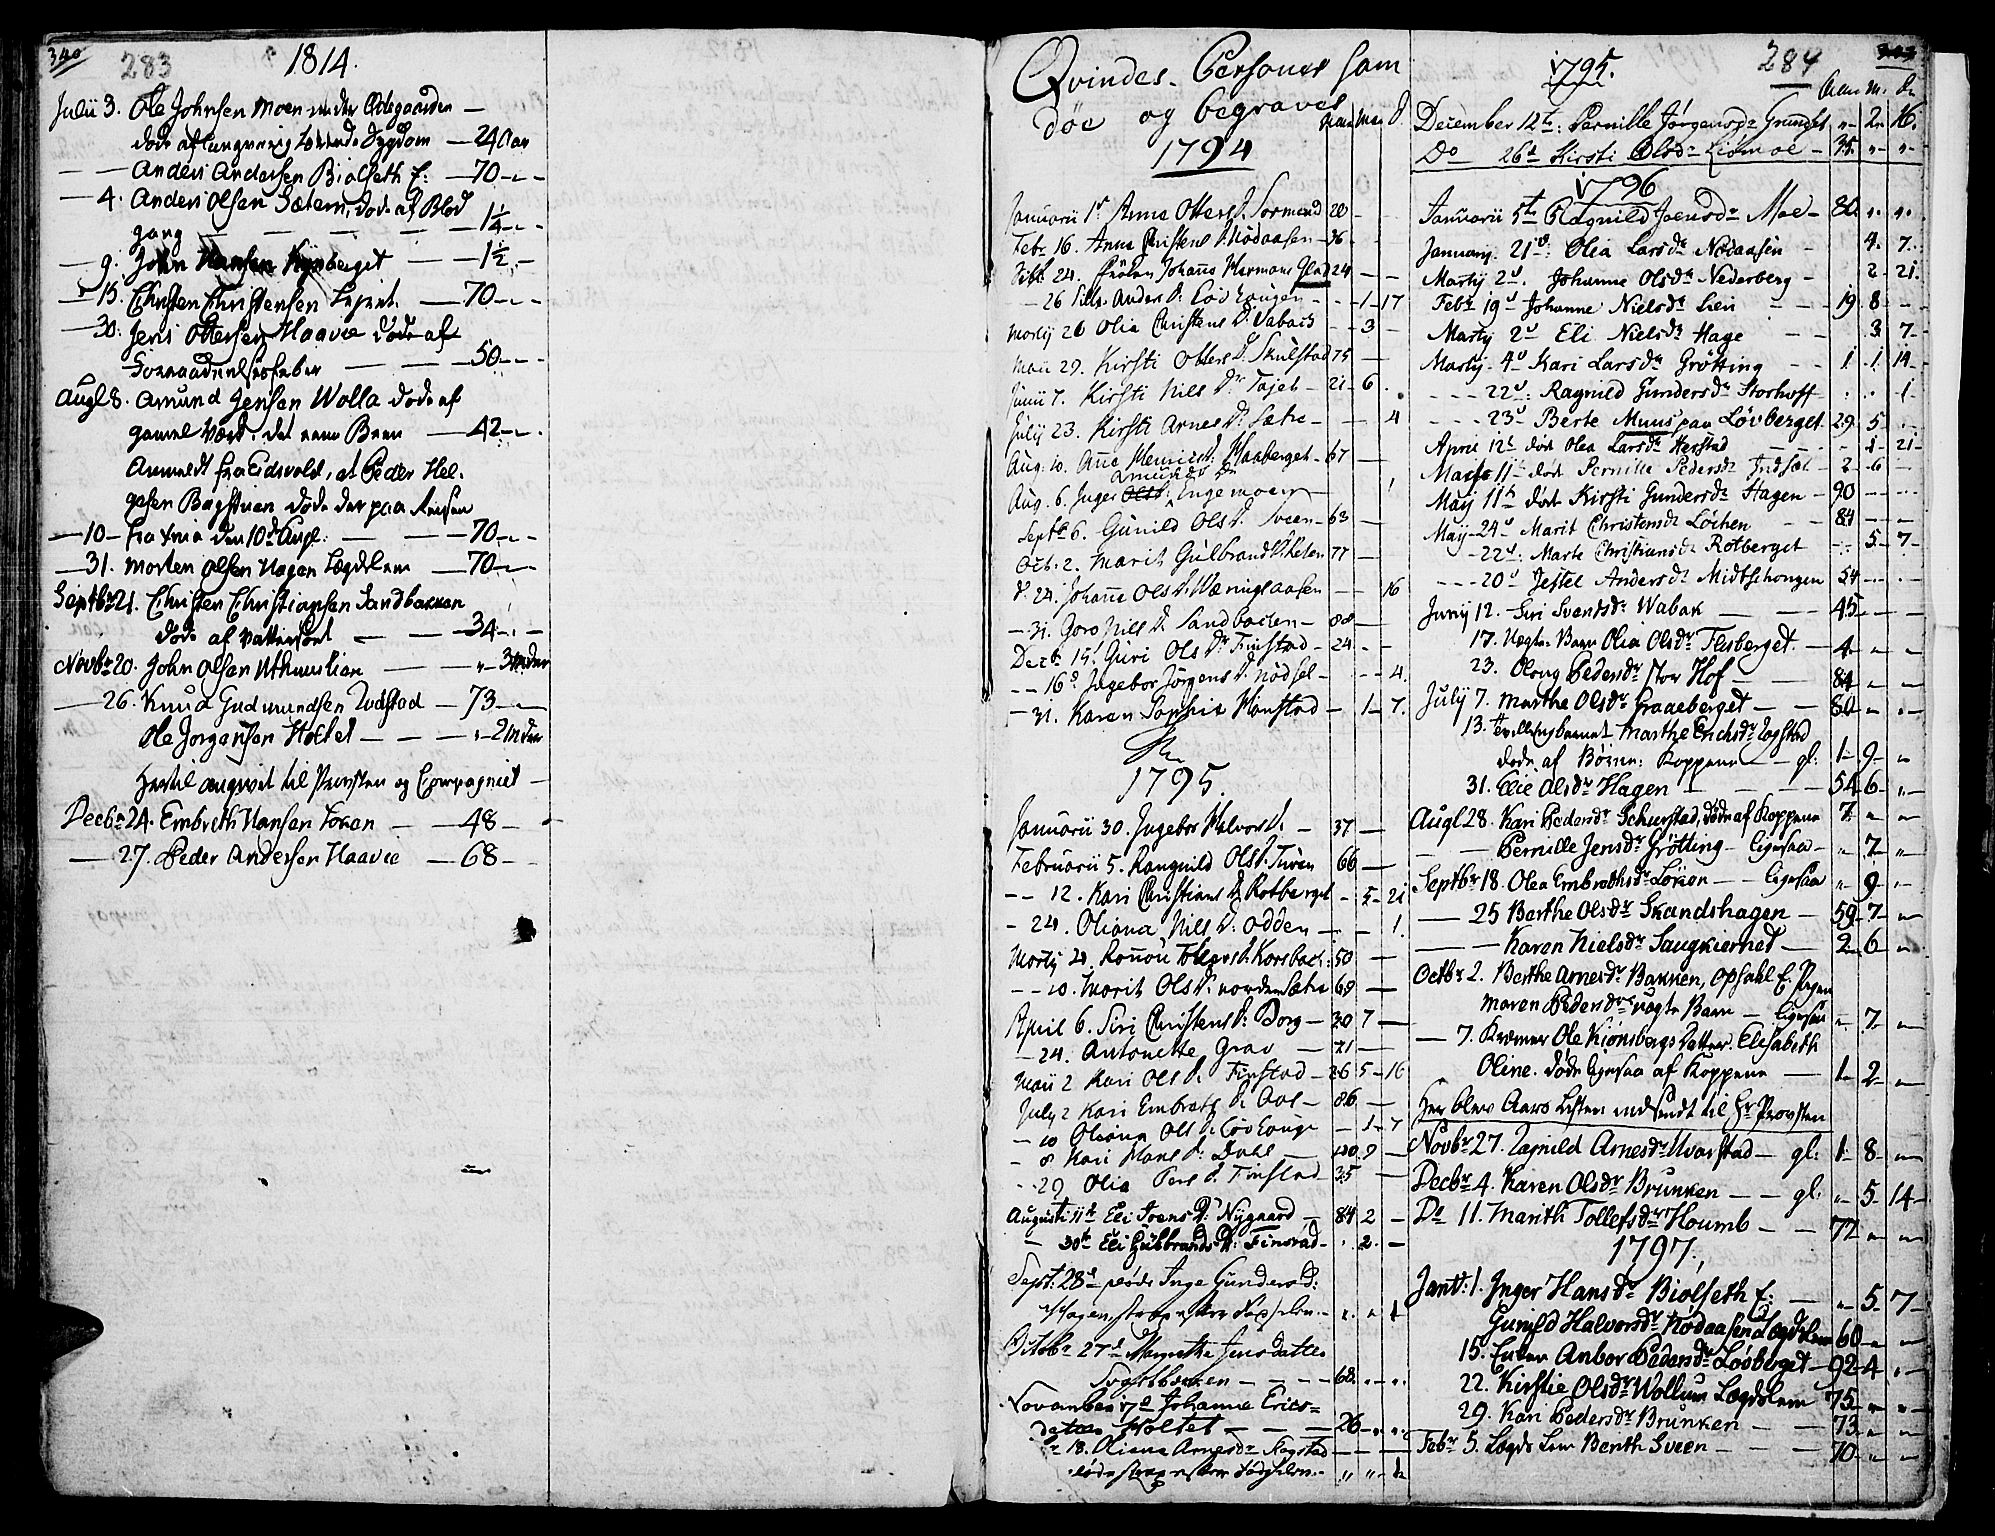 340
283
1814.
Julii 3. Ole Johnsen Moen under Ødegaarden —
døde af langvarig Sygdom — 24 Aar
— — Anders Andersen Biølseth E: — 70 - - -
— 4. Anders Olsen Sætern, døde af Blod
gang — — — — 1¼ - -
— 9. John Hansen Kynberget — — 1½ -
— 15. Christen Christensen — 70 - - -
— 30. Jens Ottersen Haavie døde af
Forraadnelsesfeber — — 50 - - -
Augl 8. Amund Jensen Wolla døde af
gamel Værk i det eene Been — 42 - - -
Anmeldt fra Eidsvold, at Peder Hel-
gesen Bagstuen døde der paa Reisen
— 10 — fra Xnia den 10d Augl: — — 70 - - -
— 31. Morten Olsen Hagen Lægdslem — 70 - - -
Septbr 21. Christen Christiansen Sandbakken
døde af Vattersoet — — 34 - - -
Novbr 20. John Olsen — — „ 3 mdr
— 26. Knud Gudmundsen Rodstad — 73 - -
Ole Jørgensen Holtet — — — „ 2 mdr
Hertil angivet til Provsten og Compagniet —
Decbr 24. Embreth Hansen Loken — — 48 -
— 27. Peder Andersen Haavie — 68 - -
Qvindes-Personer som
døe og begraves
Aar M. D.
1794
Januarii 1st Anna Otters D. Sormand 20 - -
Febr. 16. Anna Christens D. Nødaasen — 36 - -
24. Frøken Johana Hermana 24 — —
— 26 Sille Anders D. Løvhaugen - - - 1 - 17
Martij 26 Olia Christens D. Vabach - - 3 -
Maii 29. Kirsti Otters D. Skulstad 75 —
Junii 7. Kirsti Nils Dr Tajet — 21 - 6 .
July 23. Kirsti Arnes D. Sætre — — 4
Aug. 10. Ana Henrics D. Haaberget — 67 — —
Amunds Dr
Aug. 6. Inger Engemoen — — 1
Septb 6. Gunild Ols D. Sveen — 63 —
Oct. 2. Marit Gulbrands D. Heten 77 —
D. 24. Johana Ols D. Væringsaasen — — 16
— 31. Goro Nils D. Sandbacken — 88 —
Decb 15t Guri Ols Dr Finstad — 24 - -
- - 16d Ingebor Jörgens D. Nödsel — - - 4.
— 31. Karen Sophia Hanstad — 1 — 7.
1795.
Januarii 30. Ingebor Halvors D. — 37 —
Februarii 5. Rangnild Ols D. Turen 66 —
- - 12. Kari Christians D. Rotberget - 5 - 21
- 24. Oliana Nils D. Odden — — 1.
Martij 21. Ronou Tollevs D. Korsbach: 50 —
- - 10. Marit Ols D. Norden Sætre 69 —
April 6. Siri Christens D. Borg — 30 7 —
— 24. Antonette Grav — 71 —
Maii 2 Kari Ols D. Finstad — 26 5 — 16
July 2 Kari Embrets D. Aas — 86 —
— 10 Oliana Ols D. Løvhouge — 1 — 7
- 8 Kari Hans D. Dahl — 100 9 —
- 29 Olia Pers D. Finstad — 35 —
Augusti 11te Eli Joens D. Nygaard — 84 2 —
— 30te Eli Gulbrands D. Finstad — . 2. —
Sept: 28d døde Inge Gunders D:
Hagen strax efter Fødselen — „ „ 1
Octobr 27d Margrethe Jens datter
Svestbacken — — — 60. „ . „ .
November 17d Johanne Erics=
datter Holtet — — — 26 „ . „ .
18. Oliana Arnes Dr Rogstad — — —
døde strax efter Fødselen — „ „ ½
1795.
284
Aar M. Da
December 12te: Pernille Jørgensdr Grundset „ 2. 16.
Do 26d Kirsti Olsdr Liömoe — 35. „ „
1796
Januarii 5te Ragnild Joensdr Moe — 80. „ . „ .
January. 21d: Olia Larsdr Nødaasen - 4. 7.
Martij 2d. Johanne Olsdr Nederberg - 2 - 21.
Febr 19d Johanne Nielsdr Lien - - 19 8 -
Martij 2d Eli Nielsdr Hage - - 3 7 -
Martij - 4d Kari Larsdr Grøtting - - 1 . 1. 14
- - - 22d: Ragnild Gundersdr Storhoff . . 1
- - - 23d Berte Muus paa Løvberget. 29 5 .
April 12te død Olea Larsdr Harstad - - 1 21 -
Maij 11te død Pernille Pedersdr Indset - 2 - 6 -
Maij 11te død Kirsti Gundersdr Hagen — 90 - -
Maij - 24d Marit Christensdr Løchen - - 84 - -
- 22d: Marte Christiansdr Rotberget - - 5 - 7 -
- - - 20d Jestel Andersdr Midtschougen 54 - -
Junij 12. Siri Svendsdr Wabak — — 45 - -
17. Barn Olia Olsdr Flisberget. — 4 - „ „
23. Oloug Pedersdr Stor Hof — — 84 „ „
July 7. Marthe Olsdr Graaeberget — — 80 „ „
13. Tvillingbarnet Marthe Erichsdr Rogstad
døde af Børne: Koppene — gl: 1 - 9 - „
31. Elie Olsdr Hagen — — — 54 6 „
Augl 28. Kari Pedersdr Schurstad, døde af Koppene 7. „ „
— — Pernille Jensdr Grøtting — ligesaa — „ 7 - „
Septbr 18. Olea Embrethsdr Løken — — ligesaa „ 9 - „
— 25 Berthe Olsdr Skandshagen — 59 - 7 - „
— — Karen Nielsdr Saugkiernet — 2 - 6 - „
Octbr 2. Berthe Arnesdr Bakken, Opsahl E.
Maren Pedersdr Barn — ligesaa — „ 7 - „
— 7. Kræmer Ole Kiønsbergs Datter Elisabeth
Oline. døde ligesaa af Koppene — 1 - 2 - „
Her blev Aars Listen indsendt til Hr Provsten
Novbr 27. Ragnild Arnesdr Hvarstad — gl: 1 - 8 - „
Decbr 4. Karen Olsdr Brunken — — gl: „ 5 - 14 -
Do 11. Marith Tollefsdr Houmb — — 77 „ „
1797.
Janv: 1. Inger Hansdr Biølseth E: — „ 5 - 7 -
Gunild Halvorsdr Nødaasen Lægdslem 60 „ „
15. Enken Anbor Pedersdr Løvberget — 92 - 4 „
22. Kirstie Olsdr Wollum Lægdslem 75 „ „
29. Kari Pedersdr Brunken — — 73 „ „
Febr 5. Lægds Lem Berith Sveen — — 70 „ „